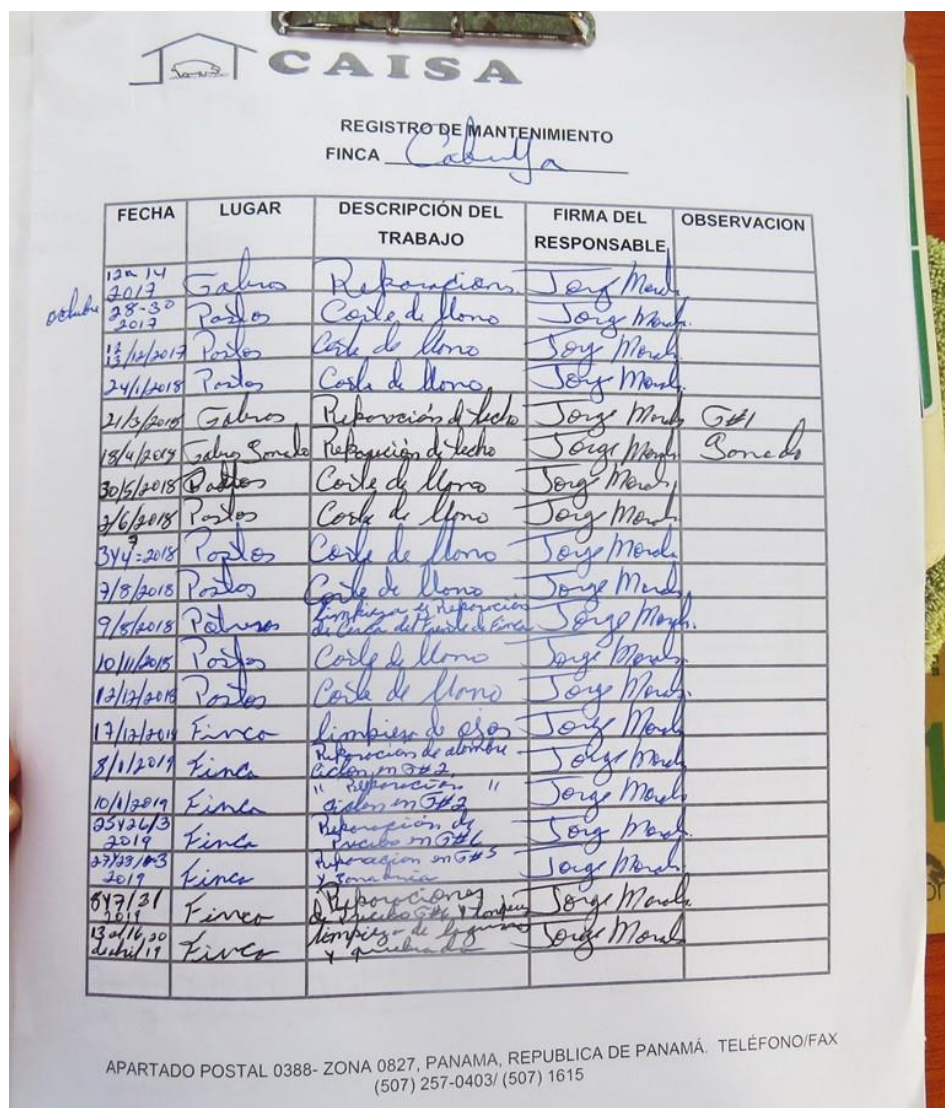 CAISA
REGISTRO DE MANTENIMIENTO
FINCA Cabuya
FECHA LUGAR DESCRIPCIÓN DEL TRABAJO FIRMA DEL RESPONSABLE OBSERVACION
12 a 14 2017 Galeras Reparacions Jorge Morales
octubre 28-30 2017 Pastos Corte de llano Jorge Morales
12/13/12/2017 Pastos Corte de llano Jorge Morales
24/1/2018 Pastos Corte de llano Jorge Morales
21/3/2018 Galeras Reparación de techo Jorge Morales G#1
18/4/2018 Galera Reparación de techo Jorge Morales
30/5/2018 Pastos Corte de llano Jorge Morales
2/6/2018 Pastos Corte de llano Jorge Morales
3 y 4 = 7 2018 Pastos Corte de llano Jorge Morales
7/8/2018 Pastos Corte de llano Jorge Morales
9/8/2018 Potreros Limpieza y Reparación de Cerca del frente de Finca Jorge Morales
10/11/2018 Pastos Corte de llano Jorge Morales
12/12/2018 Pastos Corte de llano Jorge Morales
17/12/2018 Finca limpieza de Jorge Morales
8/1/2019 Finca Reparacion de alambre Ciclon en G#2 Jorge Morales
10/1/2019 Finca " Reparación " ciclon en G#2 Jorge Morales
25 y 26/3 2019 Finca Reparación de en G#6 Jorge Morales
27/28/3 2019 Finca Reparación en G#5 y Jorge Morales
2019 Finca Reparaciones de G#6 y Jorge Morales
de abril/19 Finca limpieza de laguna y quebrada Jorge Morales
APARTADO POSTAL 0388- ZONA 0827, PANAMA, REPUBLICA DE PANAMÁ. TELÉFONO/FAX
(507) 257-0403/ (507) 1615